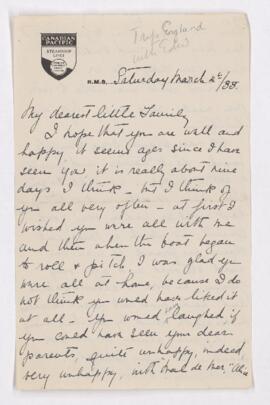 CANADIAN
PACIFIC
STEAMSHIP
LINES
Trip England
with
R.M.S. Saturday March 26/38.
My dearest little Family
I hope that you are well and
happy, it seems ages since I have
seen you, it is really about nine
days I think - but I think of
you all very often - at first I
wished you were all with me
and then when the boat began
to roll & pitch I was glad you
were all at home, because I do
not think you would have liked it
at all - you would laughed if
you could have seen your dear
parents, quite unhappy, indeed
very unhappy, with "mal de mer,"